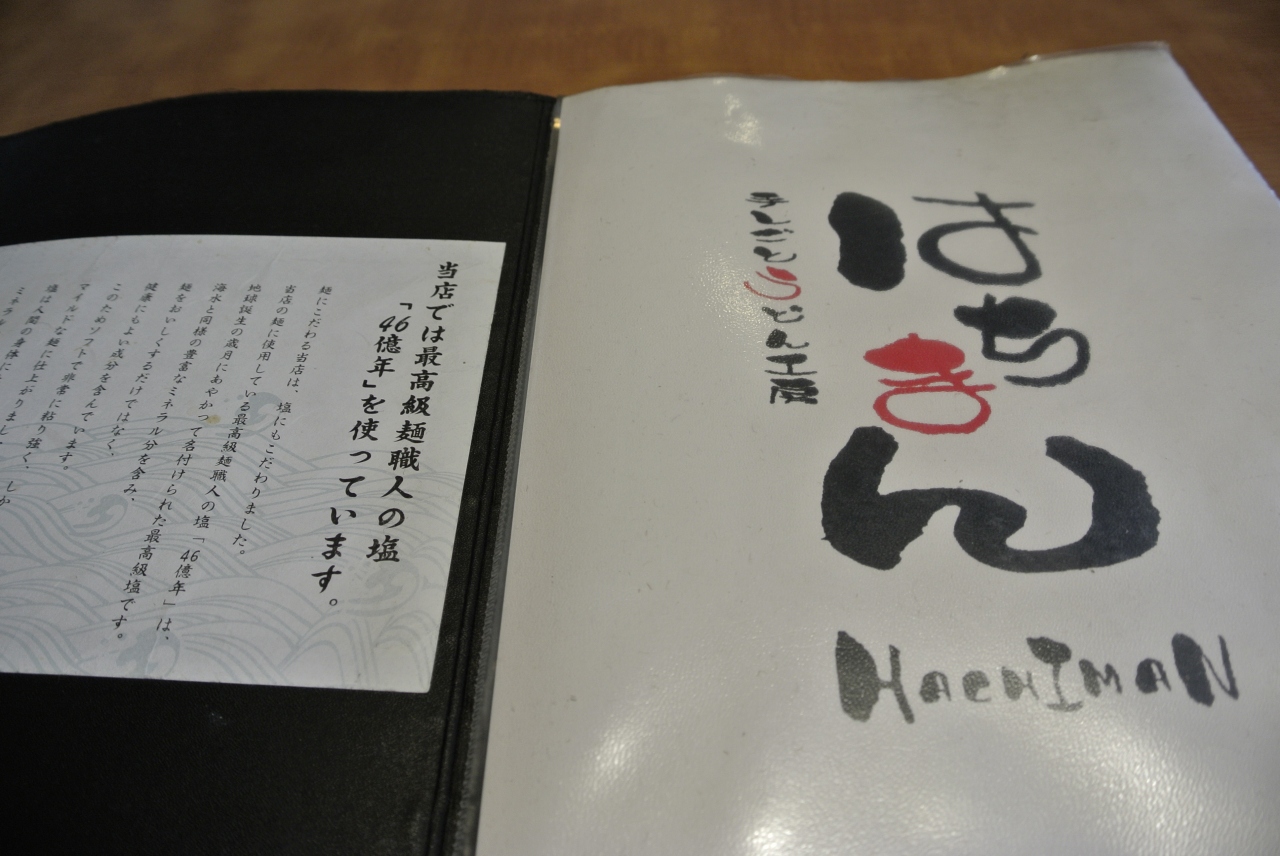 はちまん
HACHIMAN
手しごとうどん工房
当店では最高級麺職人の塩
「46億年」を使っています。
麺にこだわる当店は、塩にもこだわりました。
当店の麺に使用している最高級麺職人の塩「46億年」は、
地球誕生の歳月にあやかって名付けられた最高級塩です。
海水と同様の豊富なミネラル分を含み、
麺をおいしくするだけではなく、
健康にもよい成分を含んでいます。
このためソフトで非常に粘り強く、しか
マイルドな麺に仕上がりまし
塩は人間の身体に
ミネラル